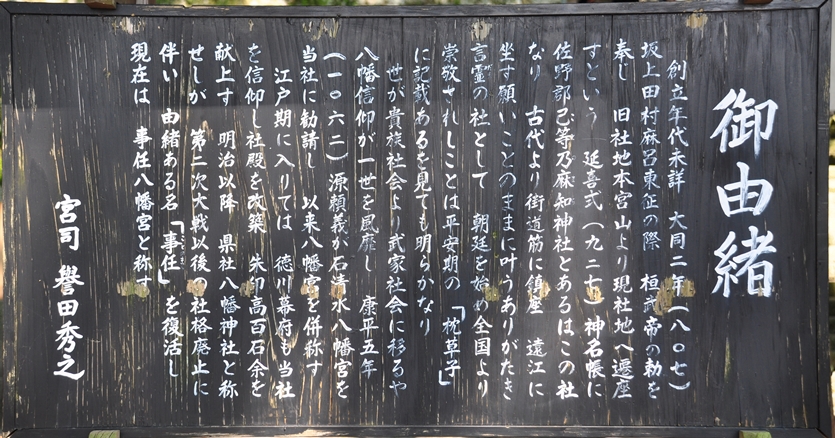 御由緒
創立年代未詳 大同二年(八〇七)
坂上田村麻呂東征の際 桓武帝の勅を
奉じ 旧社地本宮山より現社地へ遷座
すという 延喜式(九二七)神名帳に
佐野郡己等乃麻知神社とあるはこの社
なり 古代より街道筋に鎮座 遠江に
坐す願いことのままに叶うありがたき
言霊の社として 朝廷を始め全国より
崇敬されしことは平安期の「枕草子」
に記載あるを見ても明らかなり
世が貴族社会より武家社会に移るや
八幡信仰が一世を風靡し 康平五年
(一〇六二)源頼義が石清水八幡宮を
当社に勧請し 以来八幡宮を併称す
江戸期に入りては 徳川幕府も当社
を信仰し社殿を改築 朱印高百石余を
献上す 明治以降 県社八幡神社と称
せしが 第二次大戦以後の社格廃止に
伴い 由緒ある名「事任」を復活し
現在は 事任八幡宮と称す
宮司 誉田秀之